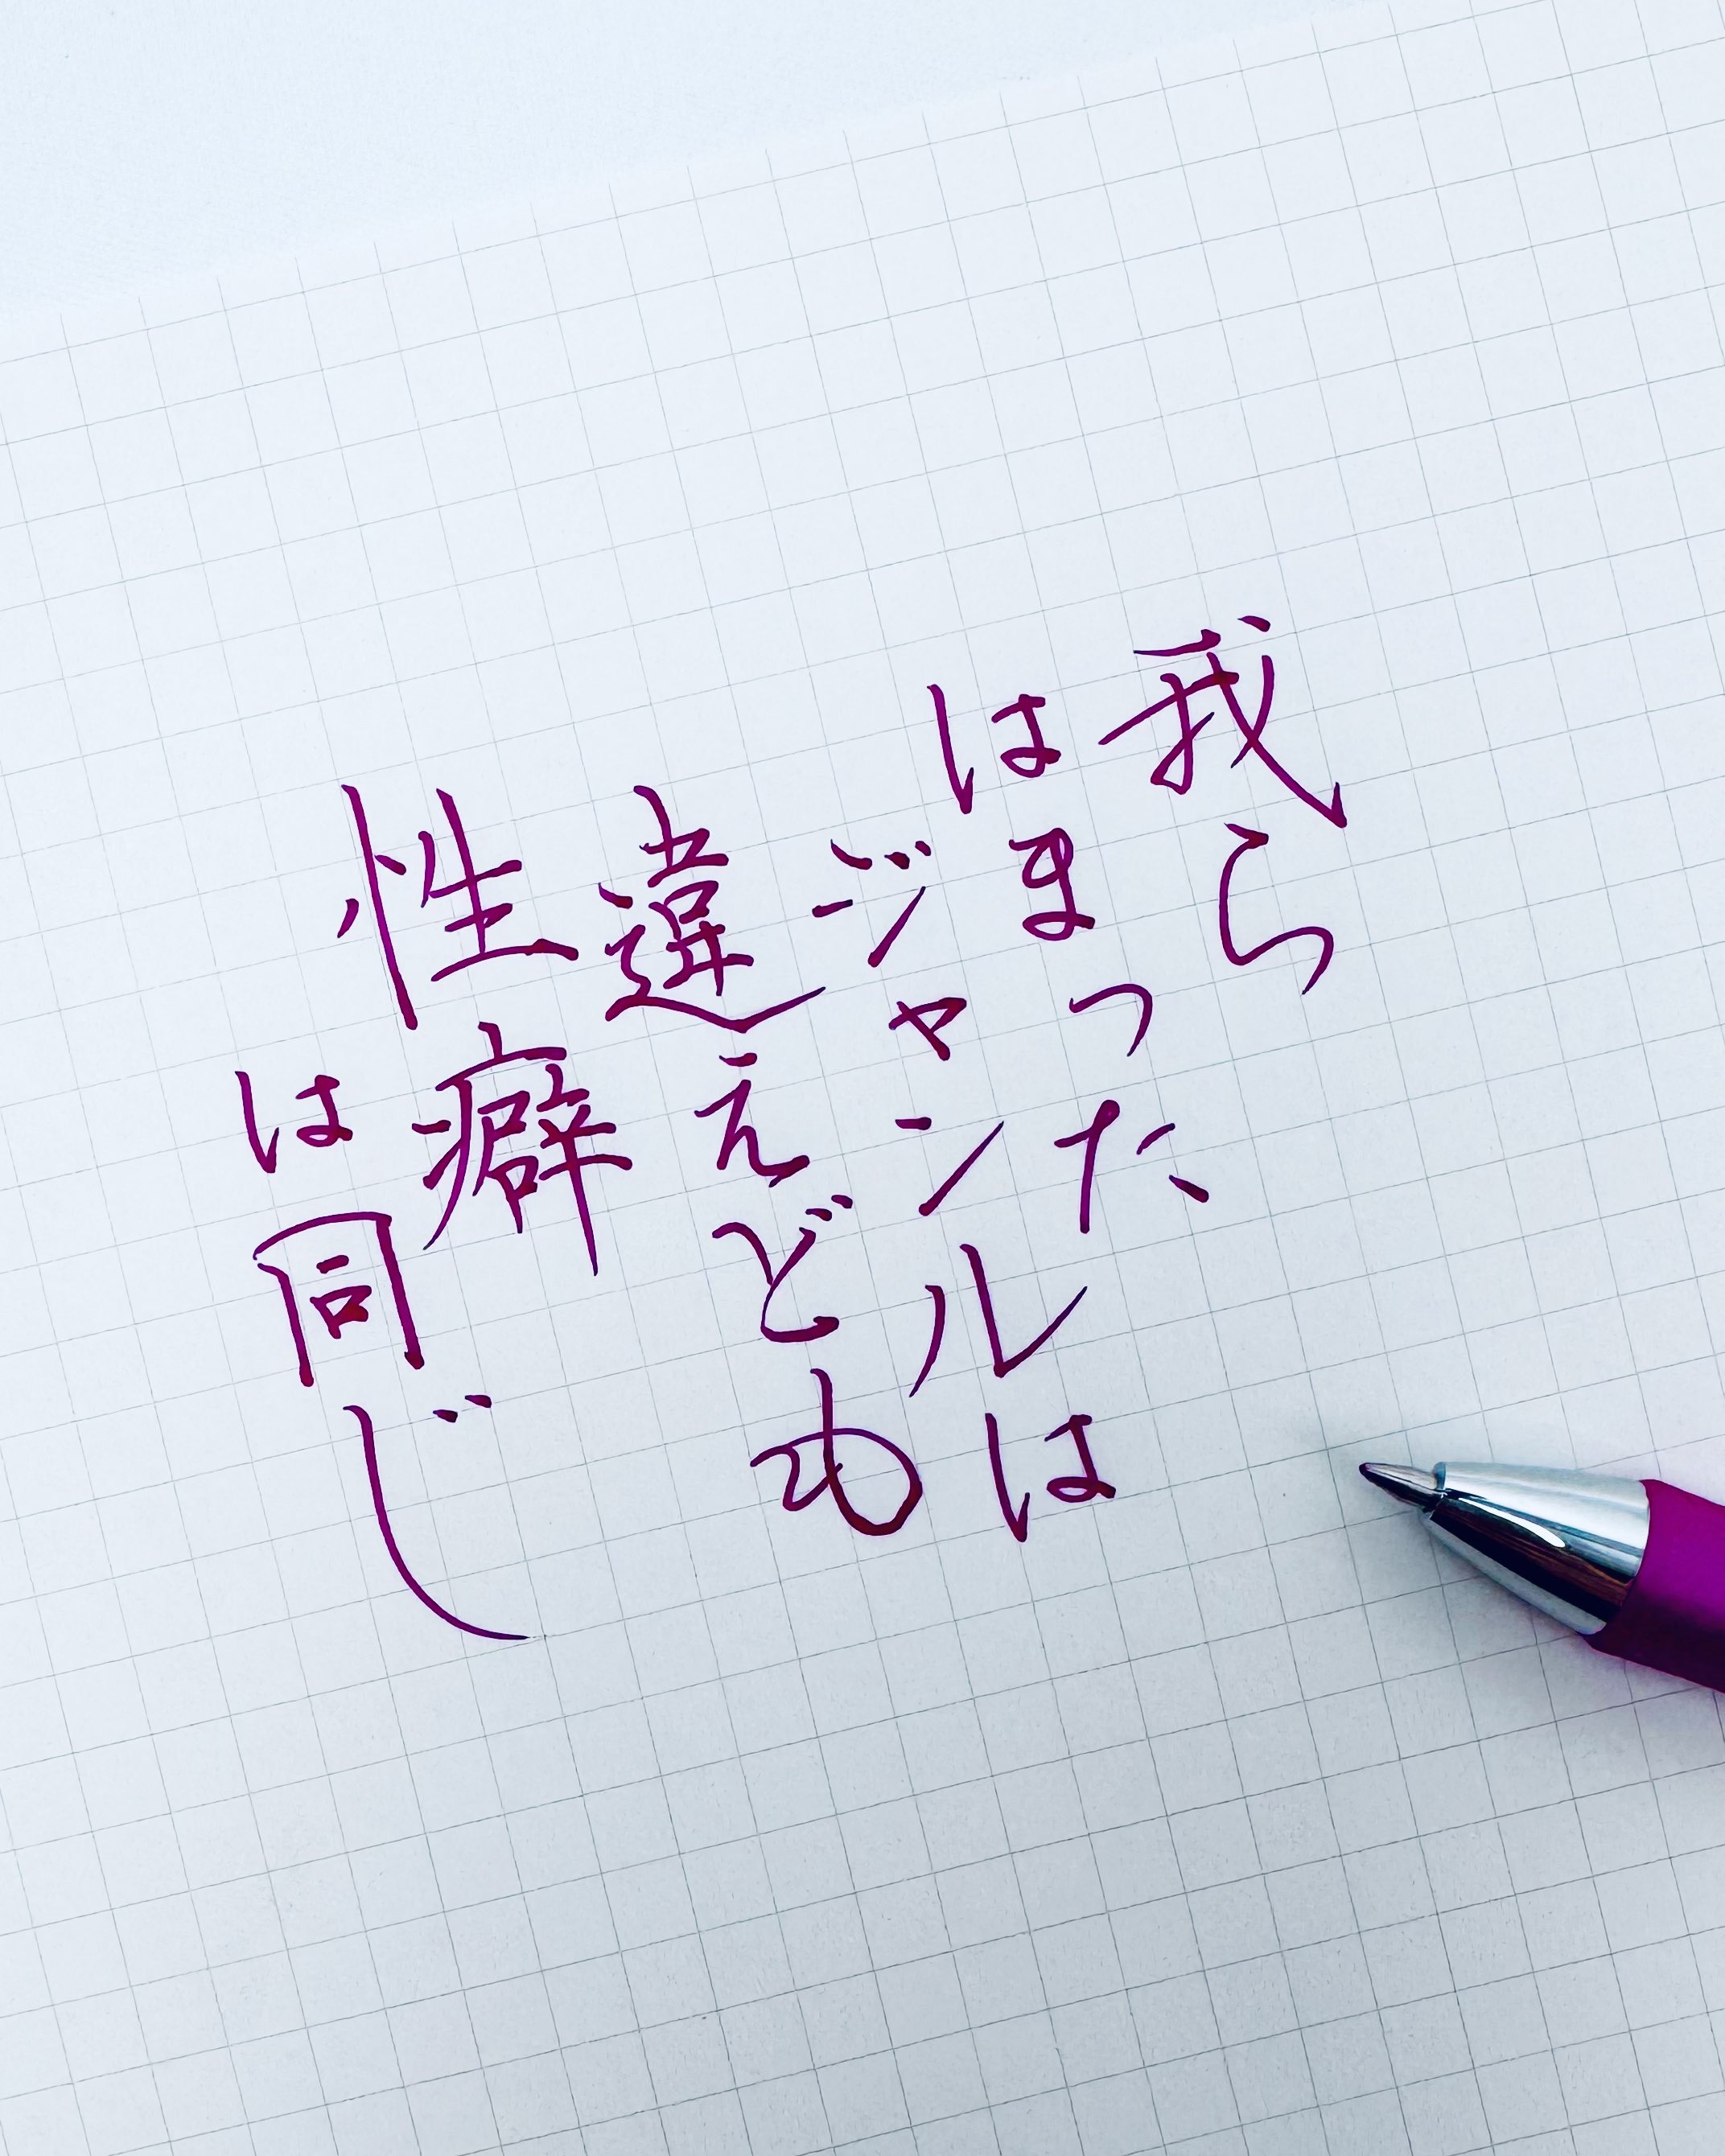 我ら
はまった
ジャンルは
違えども
性癖
は同じ